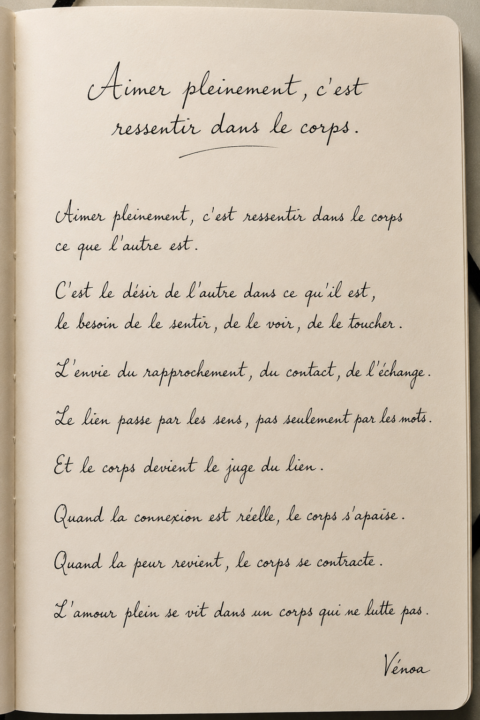 Aimer pleinement, c'est
ressentir dans le corps.
Aimer pleinement, c'est ressentir dans le corps
ce que l'autre est.
C'est le désir de l'autre dans ce qu'il est,
le besoin de le sentir, de le voir, de le toucher.
L'envie du rapprochement, du contact, de l'échange.
Le lien passe par les sens, pas seulement par les mots.
Et le corps devient le juge du lien.
Quand la connexion est réelle, le corps s'apaise.
Quand la peur revient, le corps se contracte.
L'amour plein se vit dans un corps qui ne lutte pas.
Vénoa